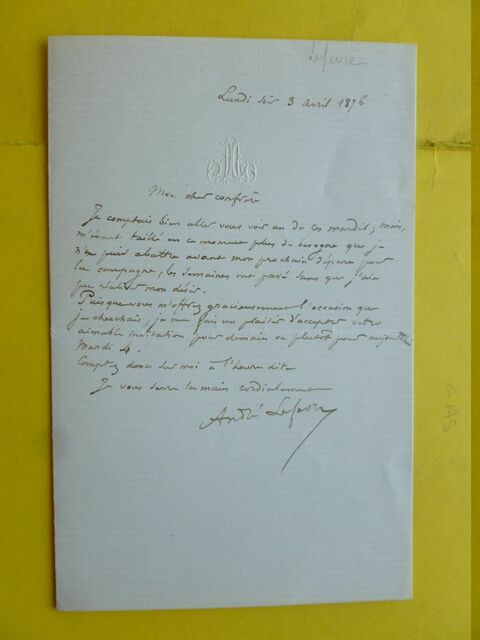 Lefevre
Lundi soir 3 avril 1876
Mon cher confrère
Je comptais bien aller vous voir un de ces mardis; mais,
m'étant taillé en ce moment plus de besogne que je
n'en puis abattre avant mon prochain départ pour
la campagne, les semaines ont passé sans que j'aie
pu réaliser mon désir.
Puisque vous m'offrez gracieusement l'occasion que
je cherchais, je me fais un plaisir d'accepter votre
aimable invitation pour demain ou plutôt pour aujourd'hui
Mardi 4.
Comptez donc sur moi à l'heure dite
Je vous serre la main cordialement
André Lefèvre
LAS